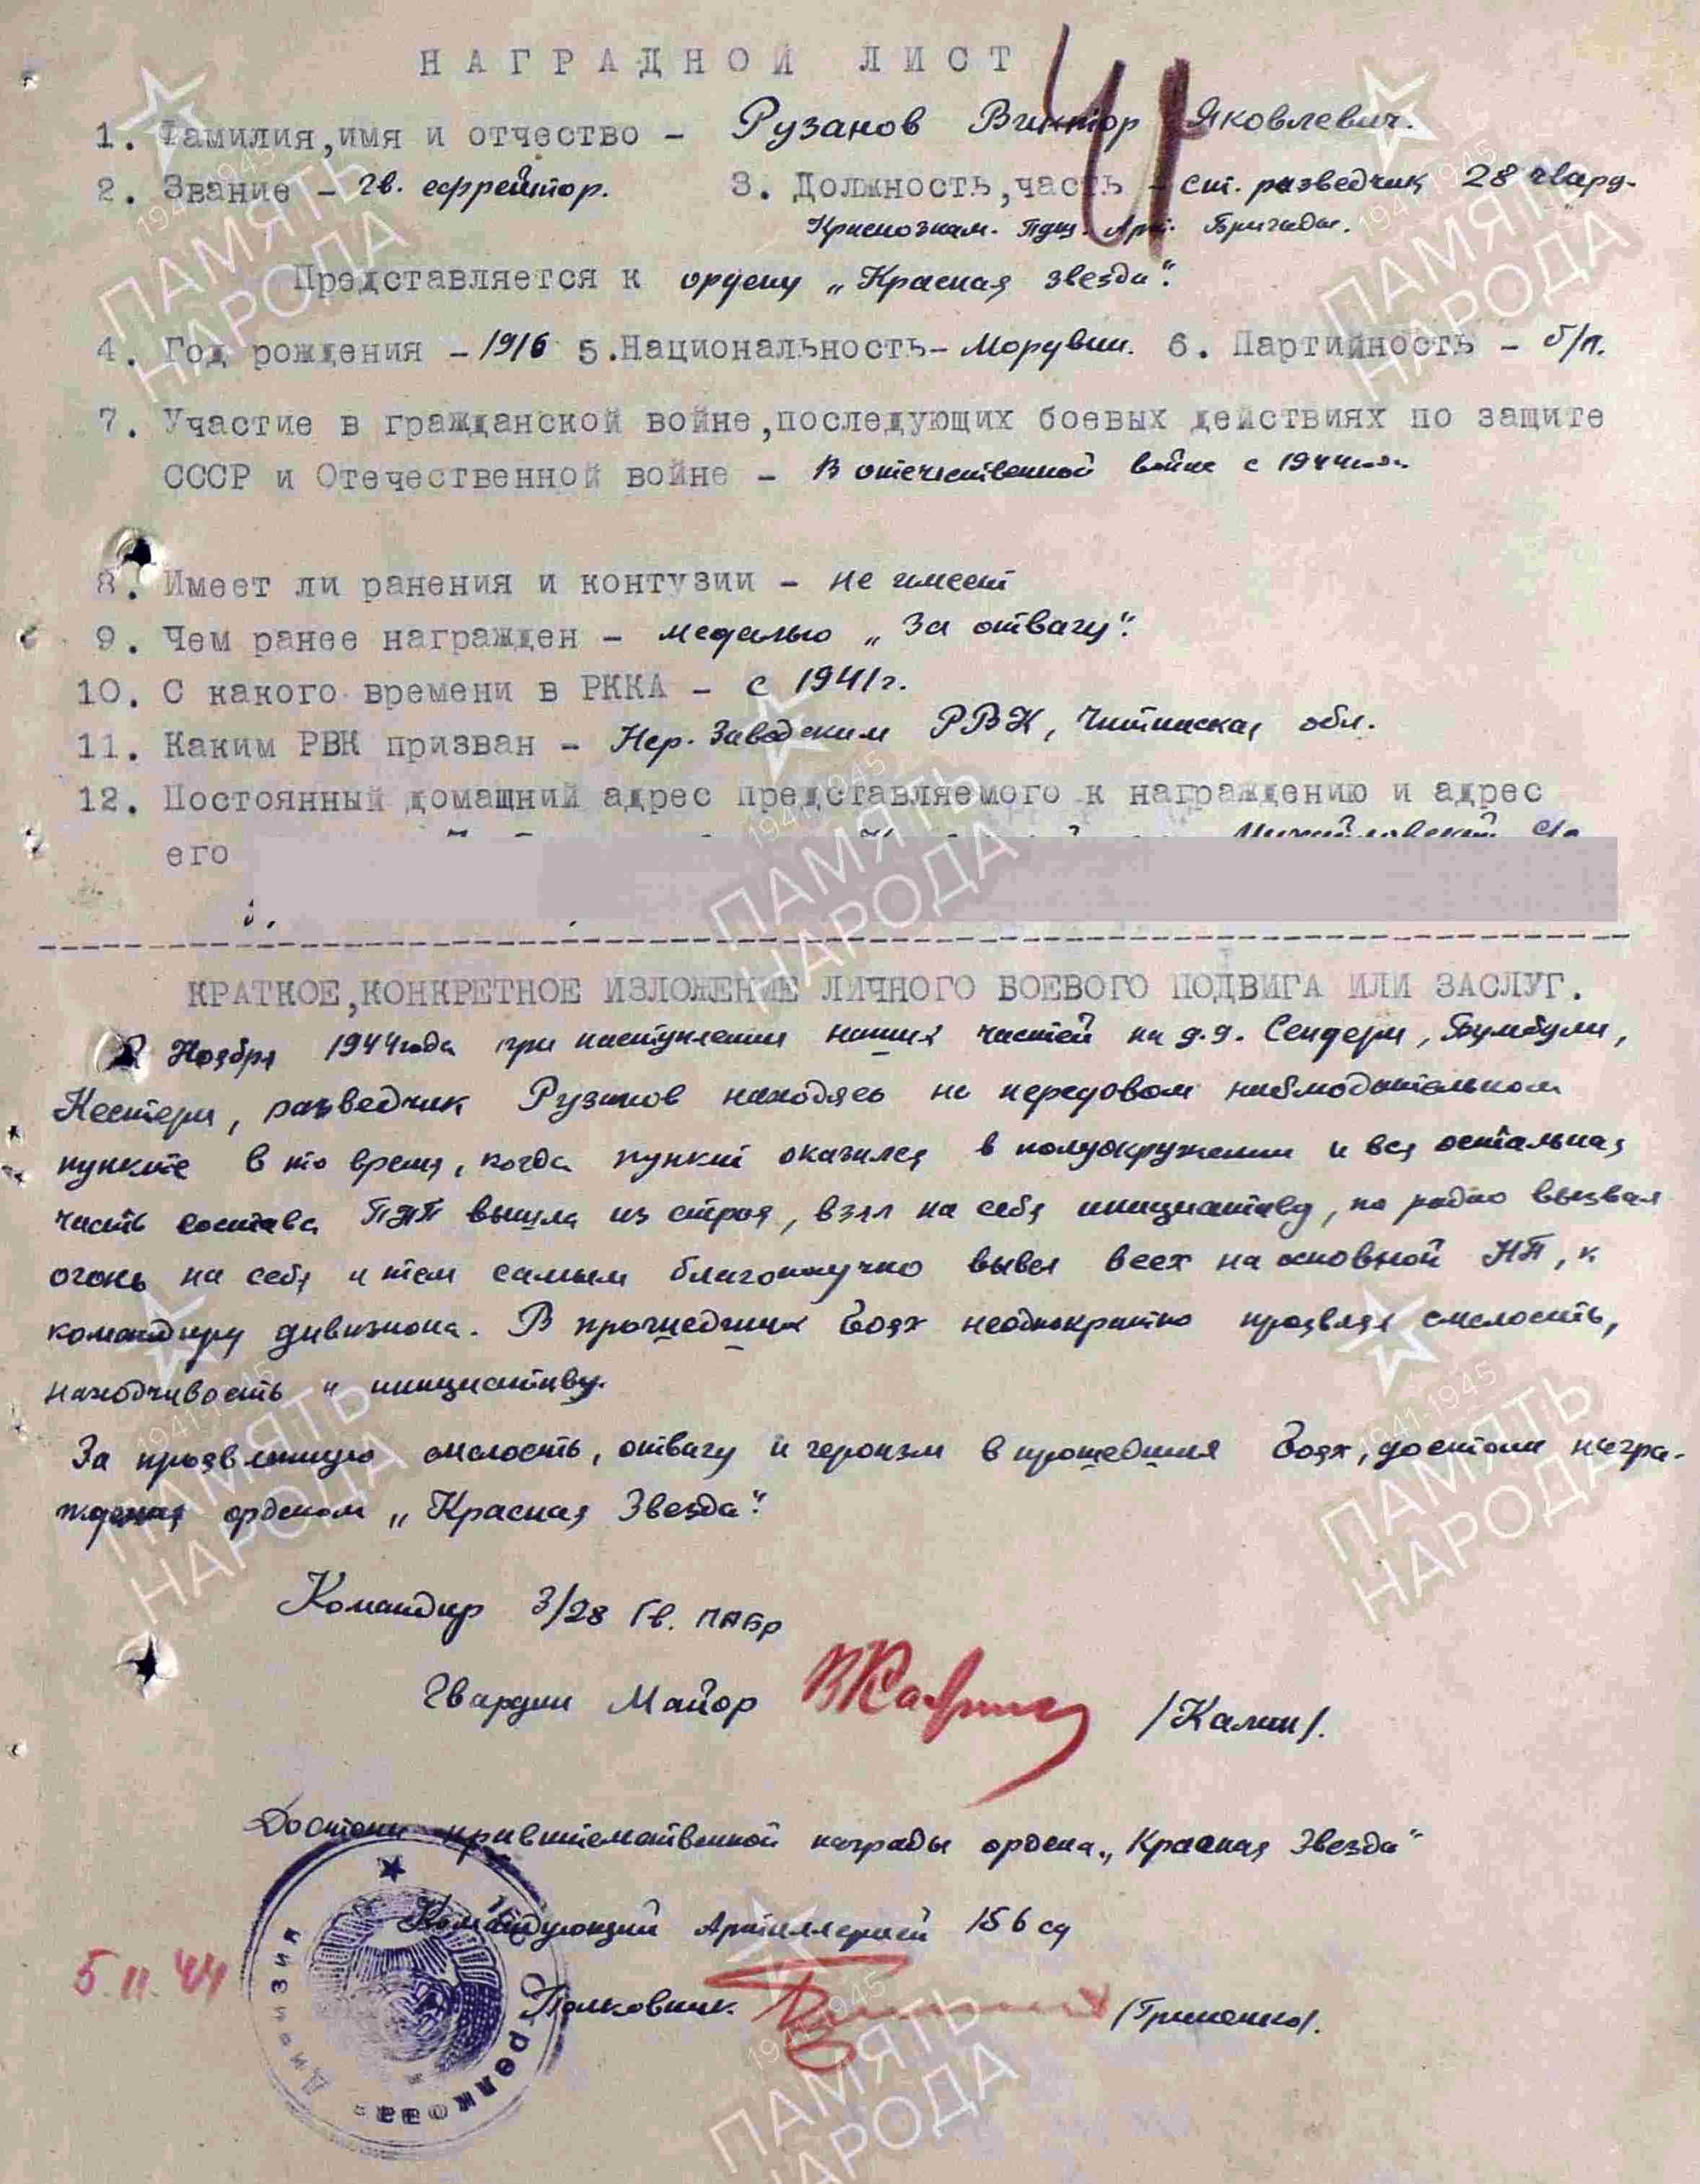 НАГРАДНОЙ ЛИСТ
1. Фамилия,имя и отчество - Рузанов Виктор Яковлевич.
2. Звание - гв. ефрейтор. 3. Должность,часть - ст. разведчик 28 гвард.
Краснознам. Пуш. Арт. Бригады.
Представляется к ордену „Красная звезда".
4. Год рождения - 1916 5.Национальность- Мордвин. 6. Партийность - б/п.
7. Участие в гражданской войне,последующих боевых действиях по защите
СССР и Отечественной войне - В отечественной войне с 1944года
8. Имеет ли ранения и контузии - не имеет
9. Чем ранее награжден - медалью „За отвагу".
10. С какого времени в РККА - с 1941г.
11. Каким РВК призван - Нер. Заводским РВК, Читинская обл.
12. Постоянный домашний адрес представляемого к награждению и адрес
его
КРАТКОЕ,КОНКРЕТНОЕ ИЗЛОЖЕНИЕ ЛИЧНОГО БОЕВОГО ПОДВИГА ИЛИ ЗАСЛУГ.
Ноября 1944года при наступлении наших частей на д.д. Сендери, Бумбули,
Нестери, разведчик Рузанов находясь на передовом наблюдательном
пункте в то время, когда пункт оказался в полуокружении и вся остальная
часть состава ПНП вышла из строя, взял на себя инициативу, по радио вызвал
огонь на себя и тем самым благополучно вывел всех на основной НП, к
командиру дивизиона. В прошедших боях неоднократно проявлял смелость,
находчивость и инициативу.
За проявленную смелость, отвагу и героизм в прошедших боях, достоин награ-
ждения орденом „Красная Звезда".
Командир 3/28 Гв. ПАБр
Гвардии Майор /Калин/.
Достоин правительственной награды ордена „Красная Звезда"
Командующий Артиллерией 156 сд
Полковник (Гриценко).
5.11.44
Стрелковая Дивизия
1941-1945
ПАМЯТЬ
НАРОДА
1941-1945
ПАМЯТЬ
НАРОДА
1941-1945
ПАМЯТЬ
НАРОДА
1941-1945
ПАМЯТЬ
НАРОДА
1941-1945
ПАМЯТЬ
НАРОДА
1941-1945
ПАМЯТЬ
НАРОДА